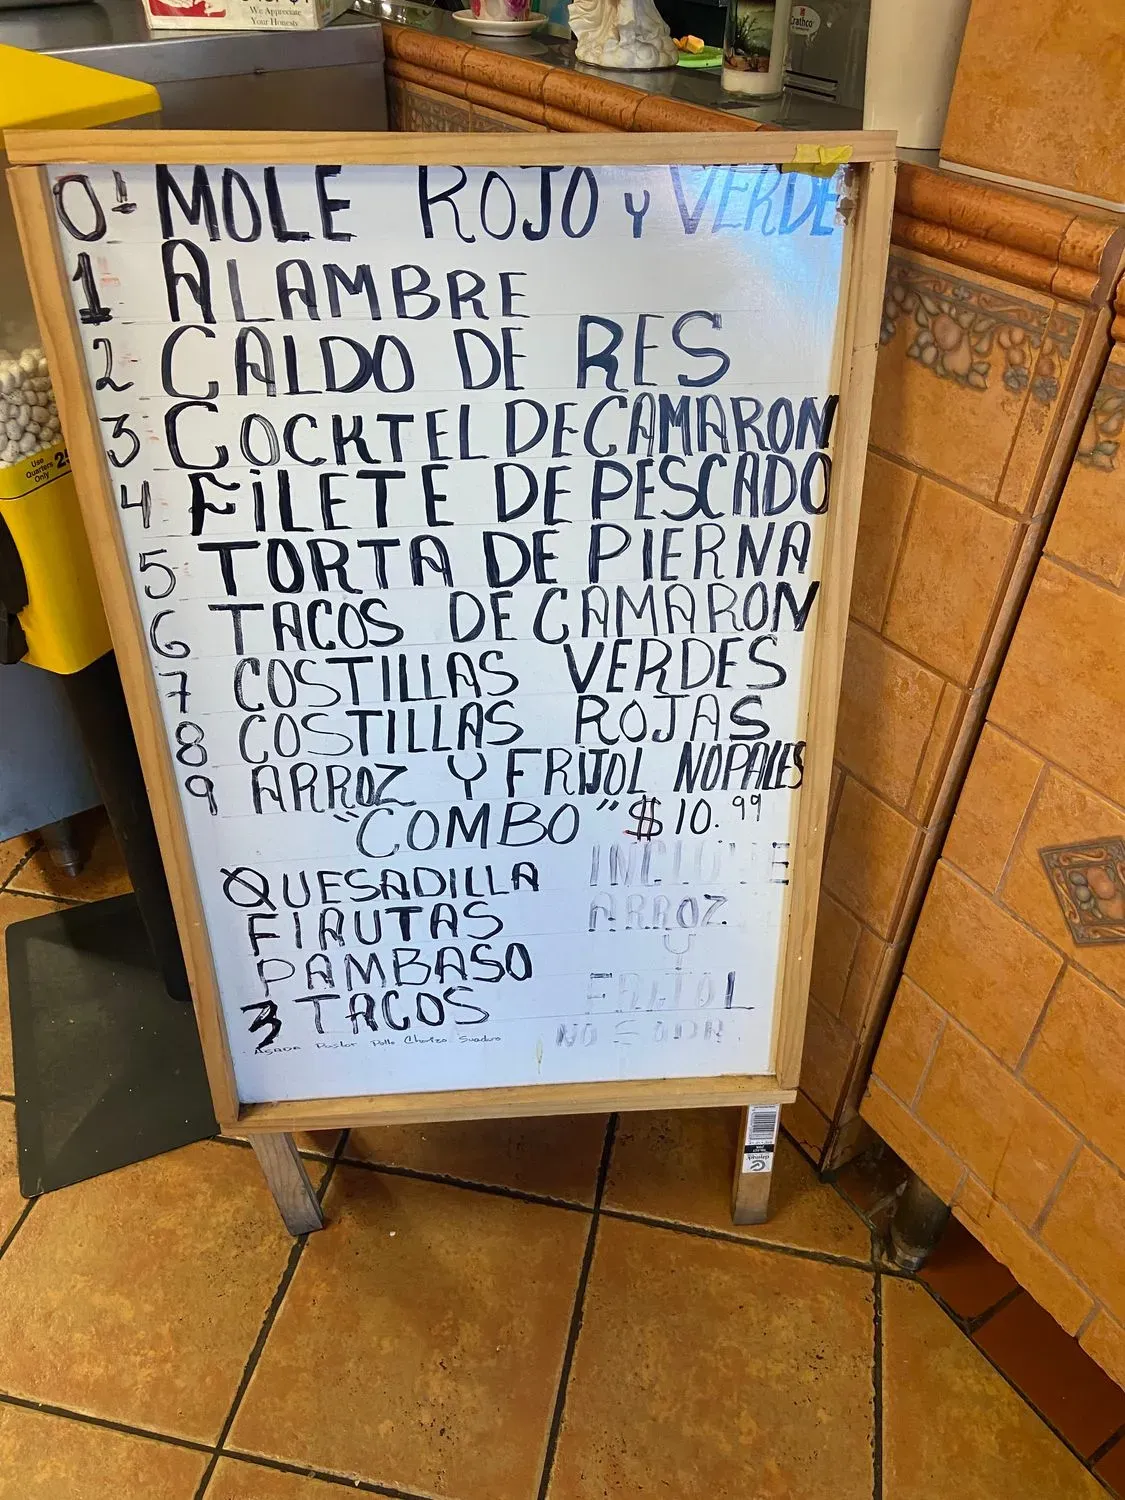 We Appreciate
Your Honesty
Crathco
Use
Quarters
Only
0- MOLE ROJO Y VERDE
1 ALAMBRE
2 CALDO DE RES
3 COCKTEL DE CAMARON
4 FiLETE DE PESCADO
5 TORTA DE PIERNA
6 TACOS DE CAMARON
7 COSTILLAS VERDES
8 COSTILLAS ROJAS
9 ARROZ Y FRIJOL NOPALES
"COMBO" $10.99
QUESADILLA INCLUYE
FLAUTAS ARROZ
Y
PAMBASO FRIJOL
3 TACOS NO
ASADA Pastor Pollo Chorizo Suadero